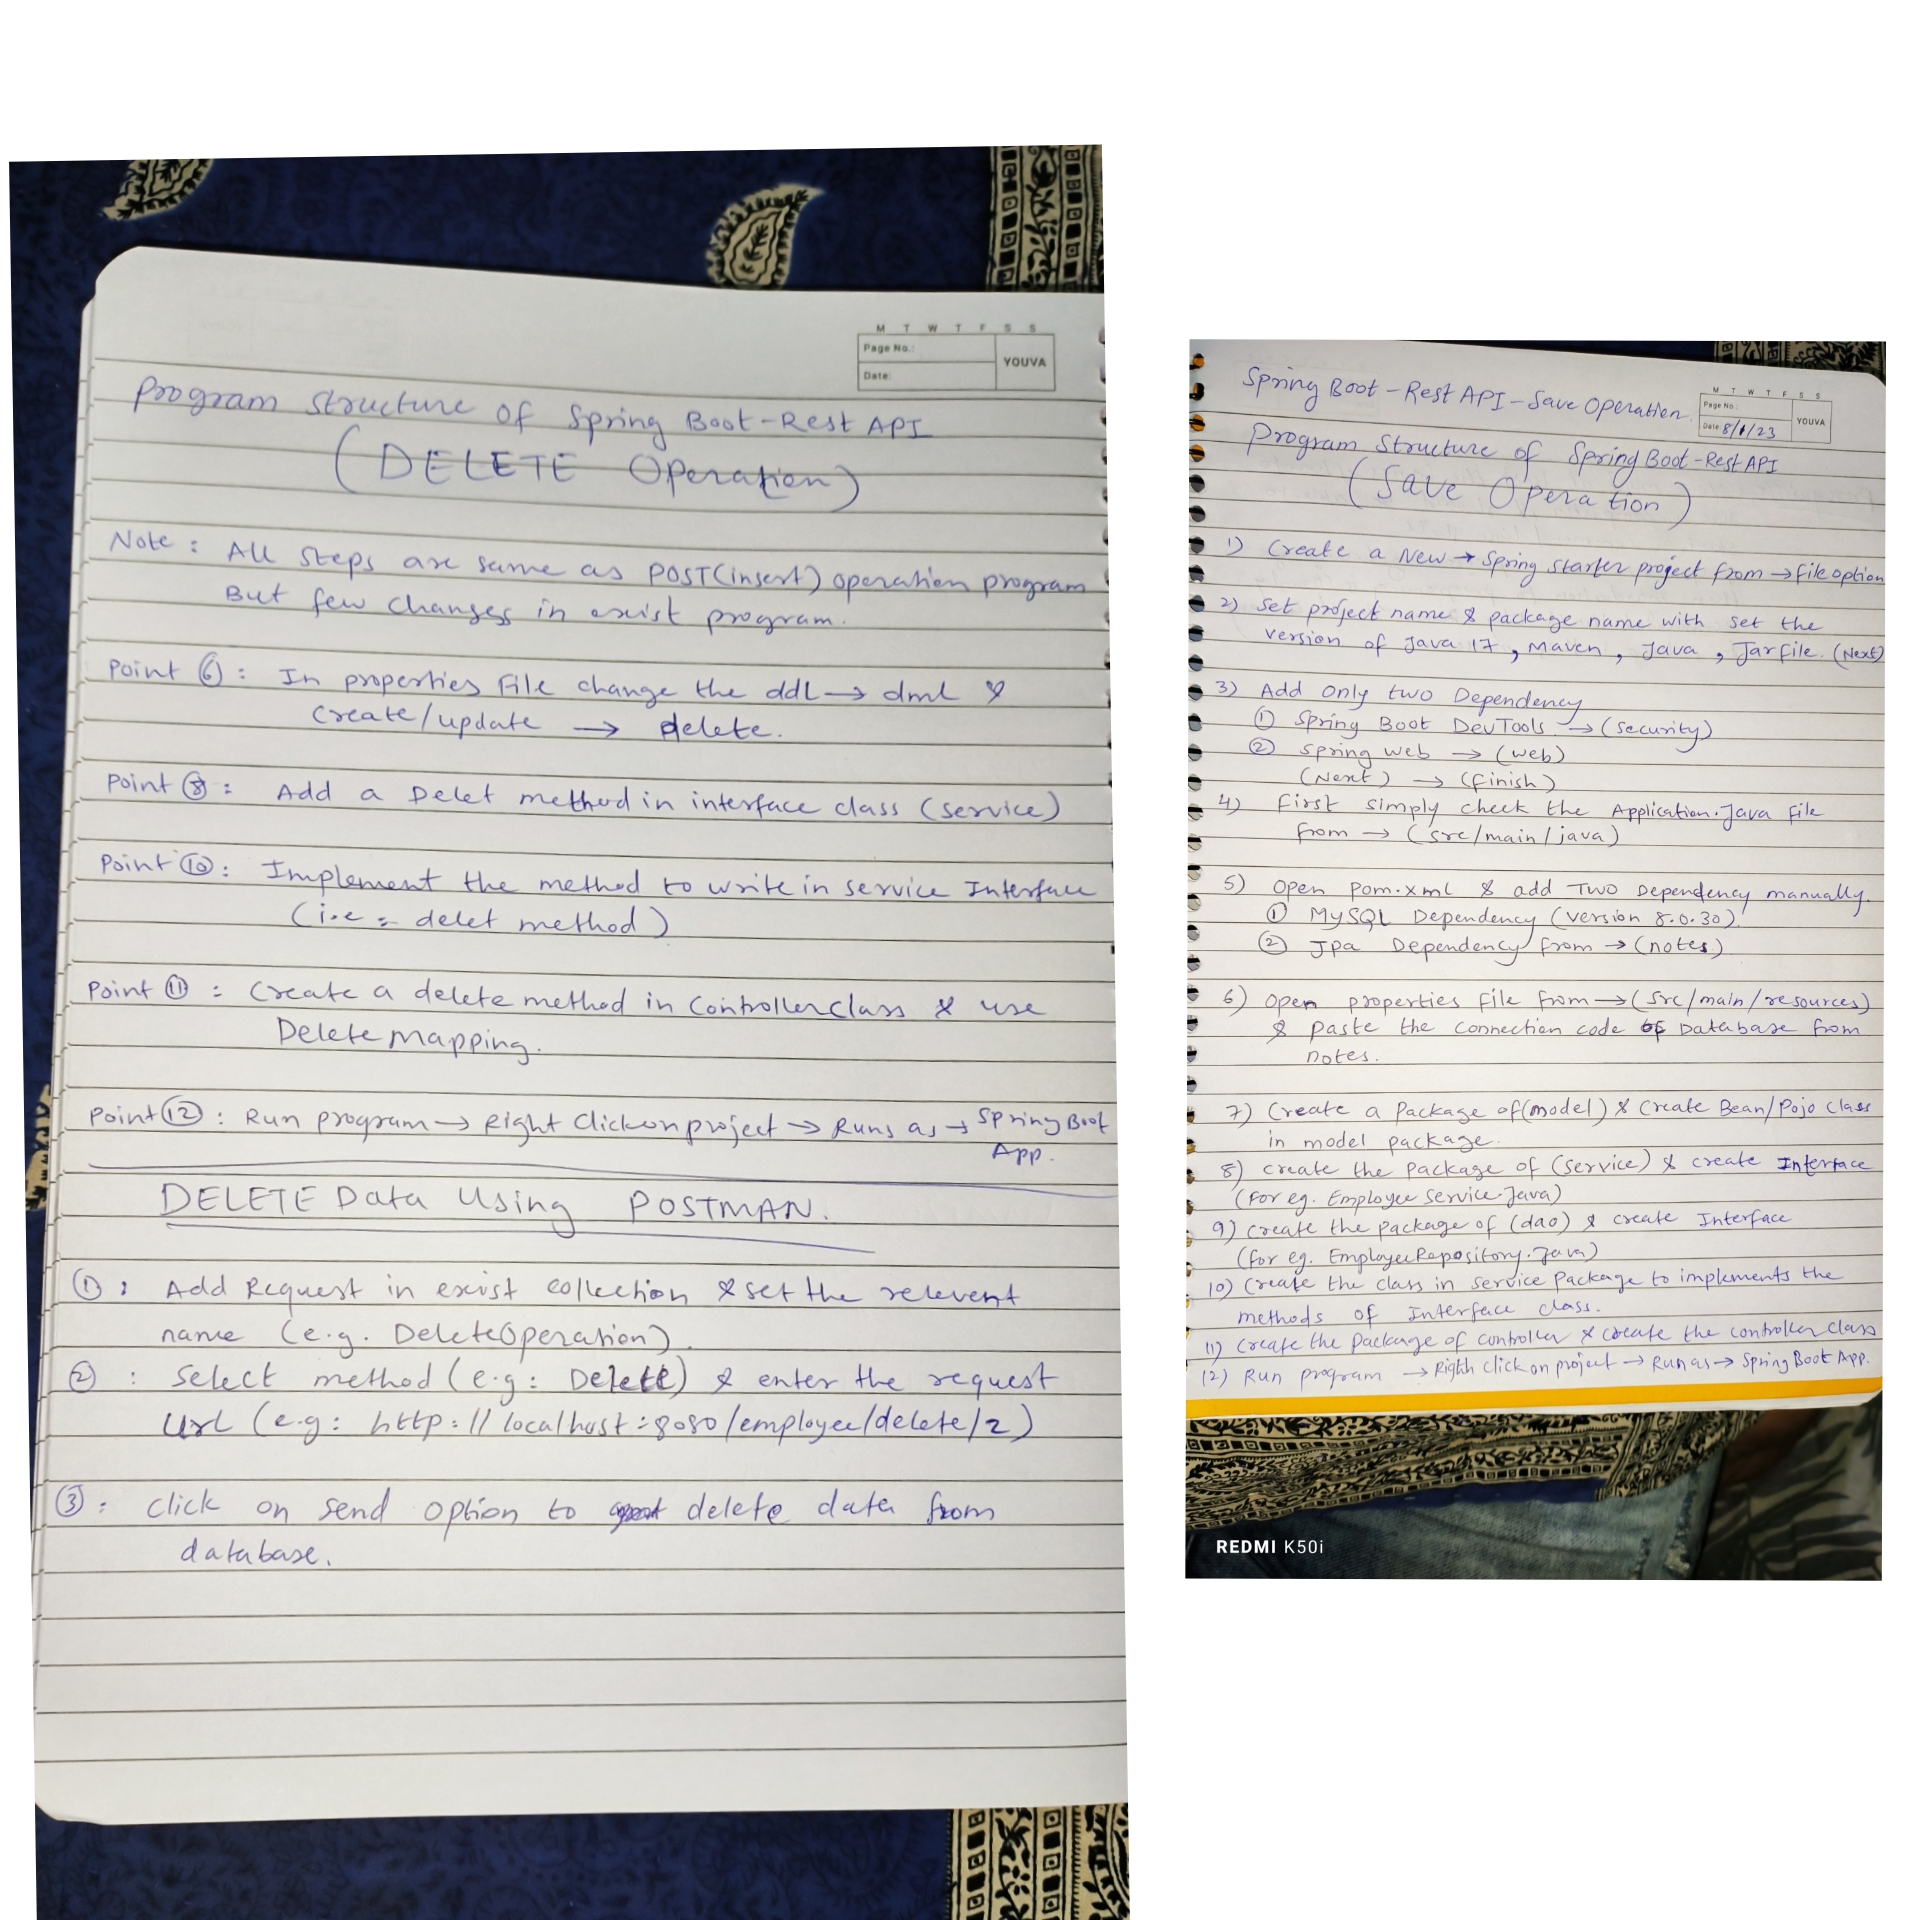 M T W T F S S
Page No.:
Date:
YOUVA
Program Structure of Spring Boot-Rest API
(DELETE Operation)
Note : All Steps are same as POST(insert) operation program
But few changes in exist program.
Point ⑥ : In properties File change the ddl → dml &
create/update → delete.
Point ⑧ : Add a Delet method in interface class (service)
Point ⑩ : Implement the method to write in service Interface
(i.e = delet method)
Point ⑪ : Create a delete method in Controller Class & use
Delete mapping.
Point ⑫ : Run program → Right Click on project → Runs as → Spring Boot
App.
DELETE Data Using POSTMAN.
① : Add Request in exist collection & set the relevent
name (e.g. DeleteOperation).
② : Select method (e.g : Delete) & enter the request
Url (e.g : http://localhost:8080/employee/delete/2)
③ : click on send option to delete data from
database.
Spring Boot - Rest API - Save Operation.
M T W T F S S
Page No.:
Date: 8/1/23
YOUVA
Program Structure of Spring Boot-Rest API
(Save Operation)
1) Create a New → Spring starter project from → file option
2) Set project name & package name with set the
version of Java 17, Maven, Java, Jar file. (Next)
3) Add only two Dependency
① Spring Boot DevTools → (security)
② Spring web → (web)
(Next) → (finish)
4) First simply check the Application.Java file
from → (src/main/java)
5) Open pom.xml & add Two Dependency manually.
① MySQL Dependency (version 8.0.30)
② Jpa Dependency from → (notes)
6) Open properties file from → (src/main/resources)
& paste the connection code of Database from
notes.
7) Create a Package of (model) & Create Bean/Pojo Class
in model package.
8) create the package of (service) & create Interface
(For eg. Employee Service.Java)
9) Create the package of (dao) & create Interface
(For eg. EmployeeRepository.Java)
10) Create the class in service Package to implements the
methods of Interface class.
11) Create the Package of controller & create the controller class
12) Run program → Righh click on project → Run as → Spring Boot App.
REDMI K50i